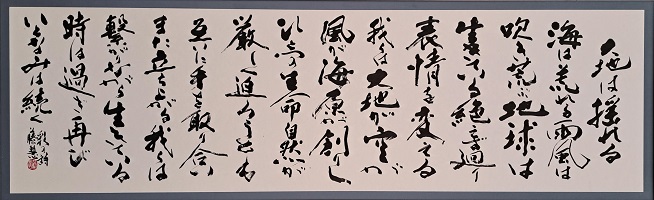 大地は揺れる
海は荒れる雨風は
吹き荒ぶ地球は
生きている絶えず廻り
表情を変える
我々は大地が空が
風が海原が創りし
ひとつの生命自然が
厳しく迫ろうとも
互いに手を取り合い
また立ち上がる我々は
繋がりながら生きている
時は過ぎ再び
いとなみは続く